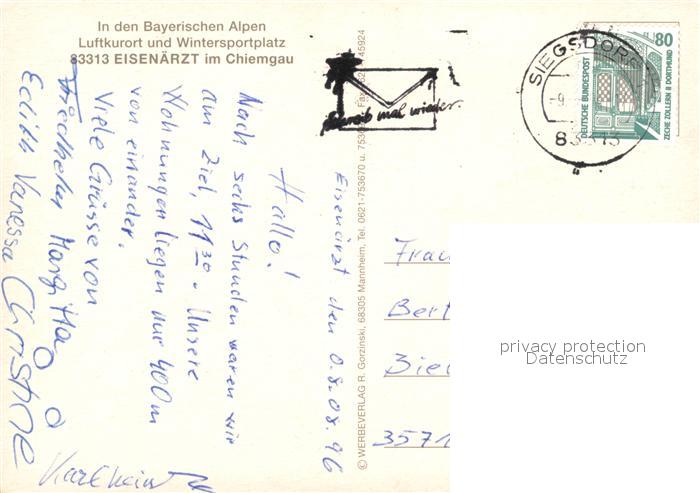 In den Bayerischen Alpen
Luftkurort und Wintersportplatz
83313 EISENÄRZT im Chiemgau
Eisenärzt den 08.08.96
Hallo!
Nach sechs Stunden waren wir
am Ziel, 11³⁰. Unsere
Wohnungen liegen nur 400m
von einander.
Viele Grüsse von
Friedhelm Margitta
Edith Vanessa Christine
Karlheinz
© WERBEVERLAG R. Gorzinski, 68305 Mannheim, Tel. 0621-753670 u.
Schreib mal wieder.
SIEGSDORF
83313
DEUTSCHE BUNDESPOST
80
ZECHE ZOLLERN II DORTMUND
Frau
Bert
Bie
3571
privacy protection
Datenschutz